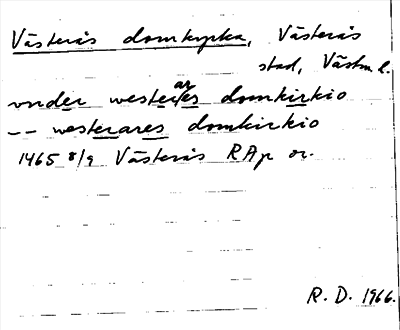 Västerås domkyrka, Västerås
stad, Västm l.
vnder westerares domkirkio
-- westerares domkirkio
1465 8/9 Västerås RAp or.
R. D. 1966.